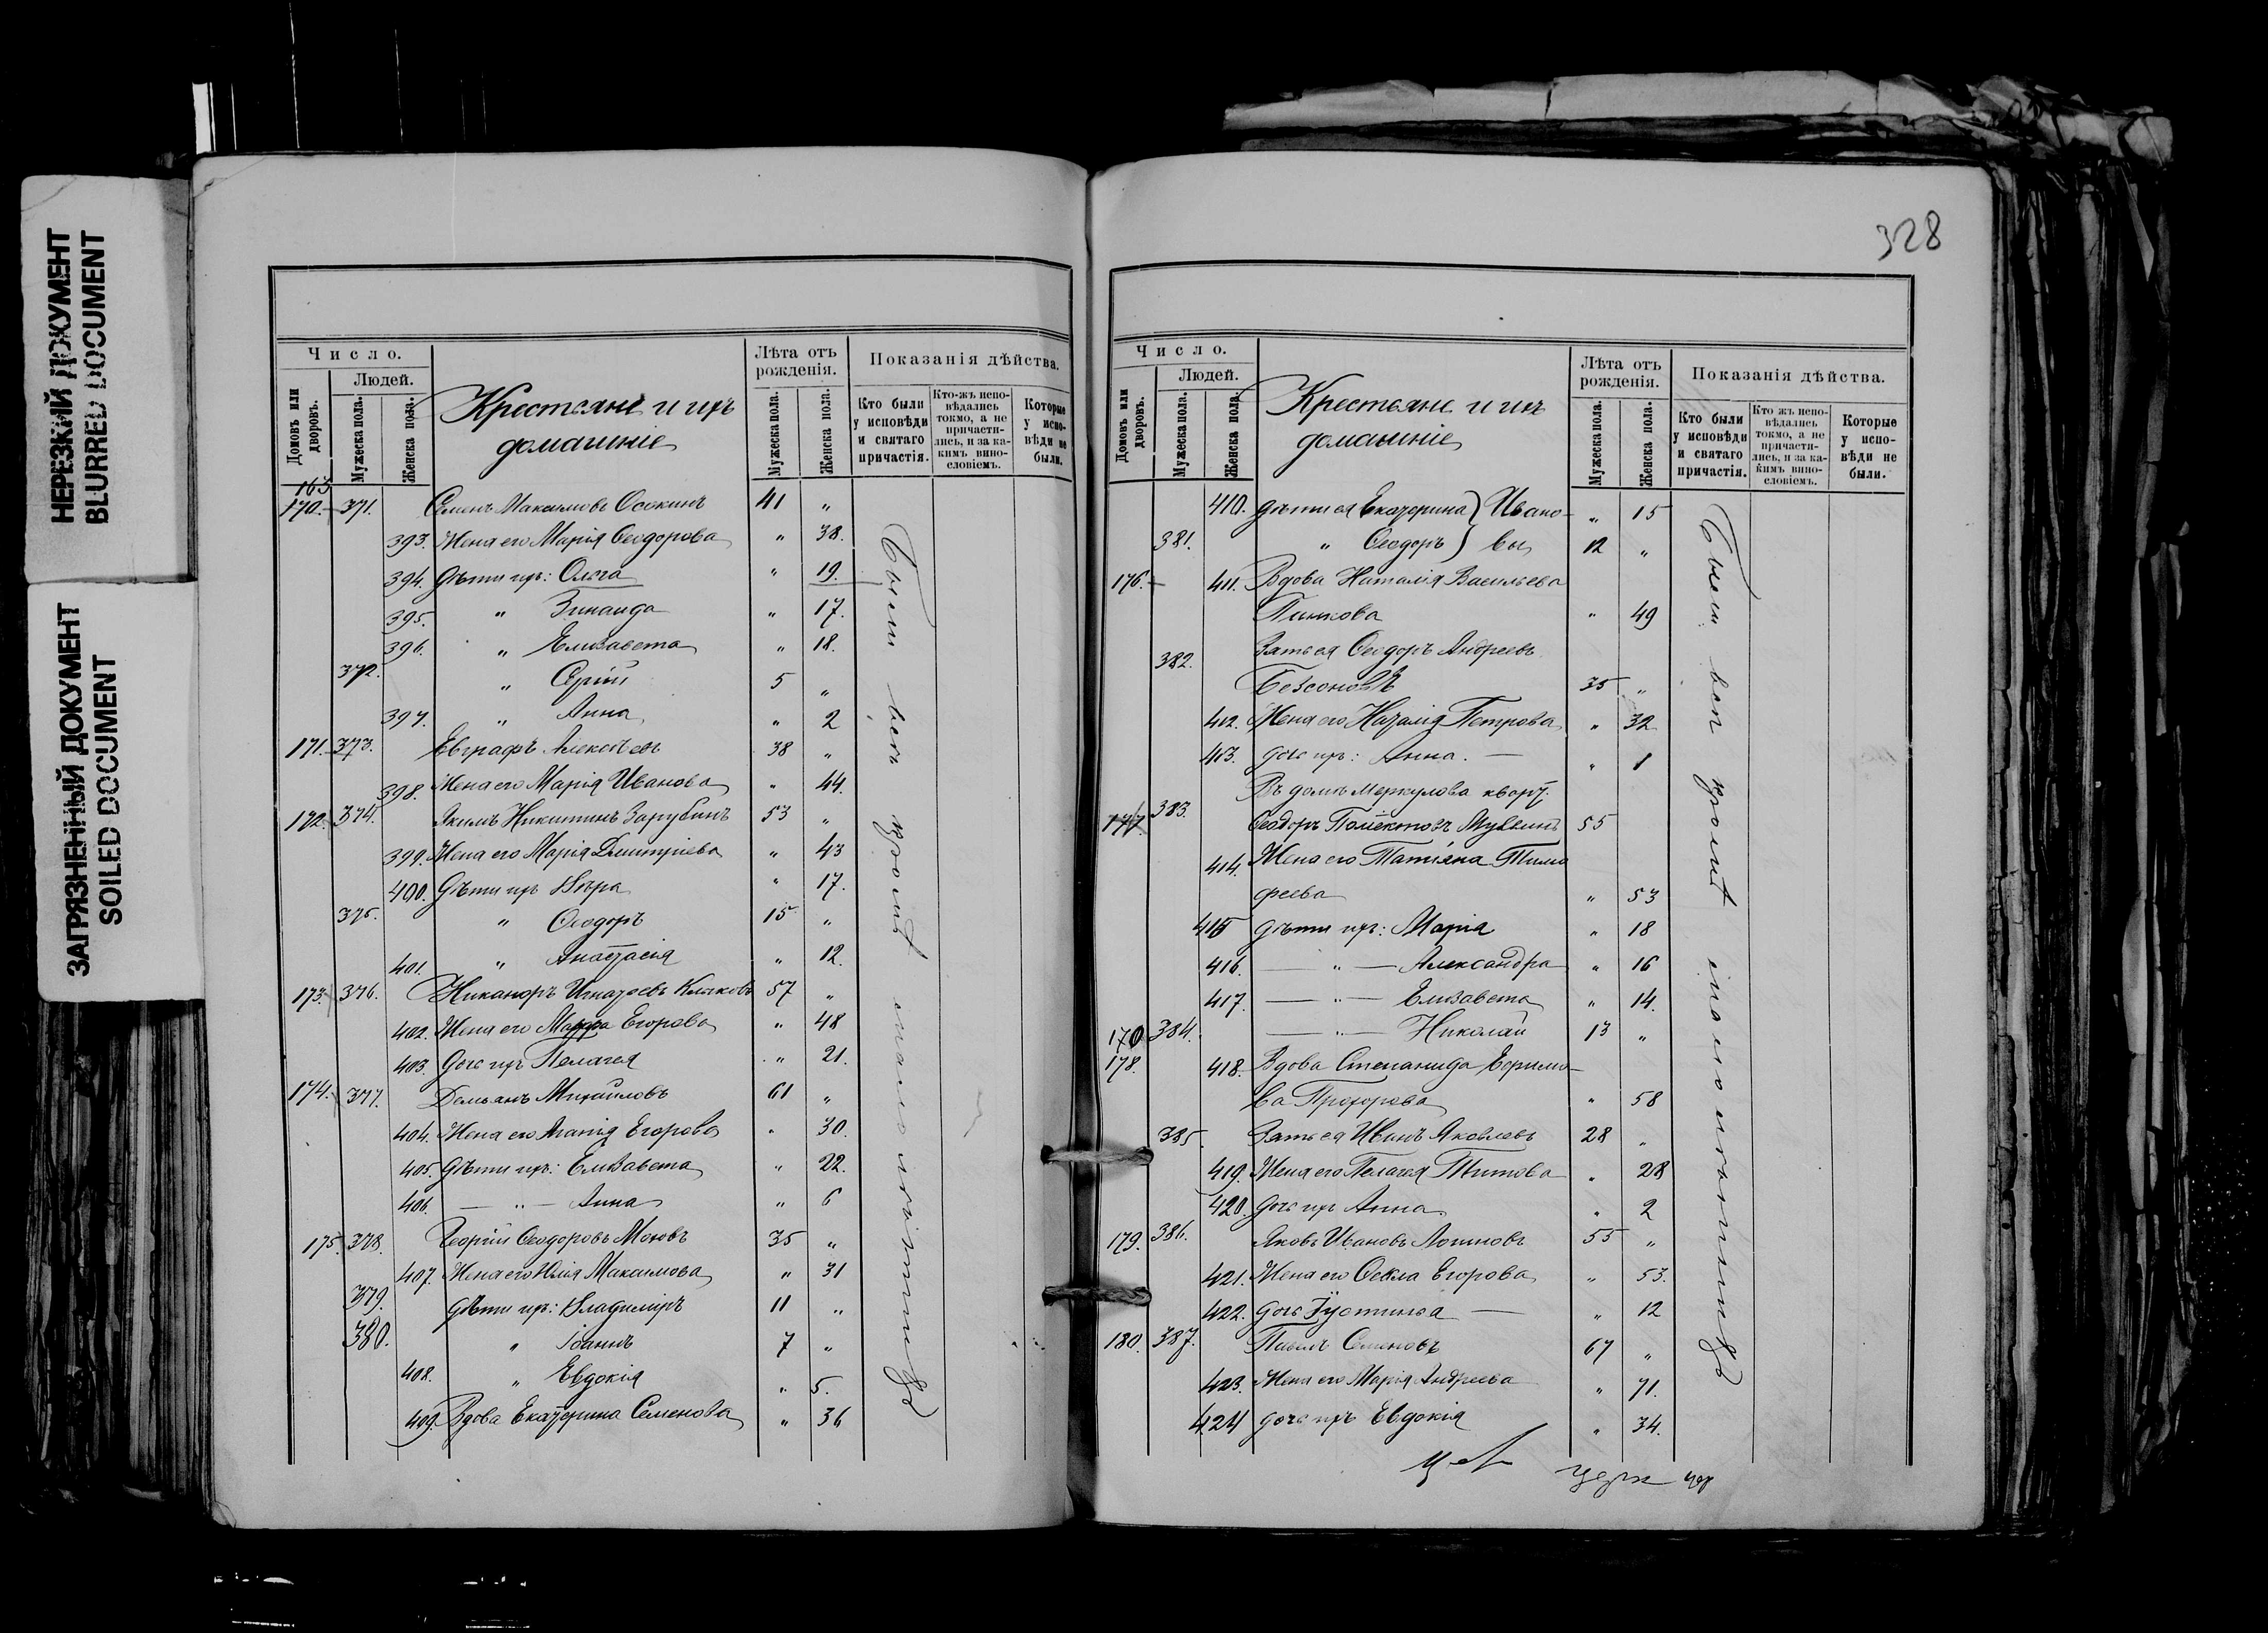 НЕРЕЗКИЙ ДОКУМЕНТ
BLURRED DOCUMENT
ЗАГРЯЗНЕННЫЙ ДОКУМЕНТ
SOILED DOCUMENT
Число.
Людей.
Домовъ или дворовъ.
Мужеска пола.
Женска пола.
Крестьяне и ихъ
домашніе
Лѣта отъ рожденія.
Мужеска пола.
Женска пола.
Показанія дѣйства.
Кто были у исповѣди и святаго причастія.
Кто-жъ исповѣдались токмо, а не причастились, и за какимъ винословіемъ.
Которые у исповѣди не были.
163
170. 371. Семенъ Максимовъ Осокинъ 41 "
393. Жена его Марія Ѳеодорова " 38.
394. Дѣти ихъ: Ольга " 19.
395. " Зинаида " 17.
396. " Елизавета " 18.
372. " Сергій 5 "
397. " Анна " 2
171. 373. Евграфъ Алексѣевъ 38 "
398. Жена его Марія Иванова " 44.
172. 374. Якимъ Никитинъ Зарубинъ 53 "
399. Жена его Марія Дмитріева " 43
400. Дѣти ихъ Вѣра " 17.
375. " Ѳеодоръ 15 "
401. " Анастасія " 12.
173. 376. Никаноръ Игнатьевъ 57 "
402. Жена его Марѳа Егорова " 48
403. Дочь ихъ Пелагея " 21.
174. 377. Демьянъ Михайловъ 61 "
404. Жена его Егорова " 30.
405. Дѣти ихъ: Елизавета " 22.
406. — " — Анна " 6
175. 378. Георгій Ѳеодоровъ 35 "
407. Жена его Юлія Максимова " 31
379. Дѣти ихъ: Владиміръ 11 "
380. " Іоаннъ 7 "
408. " Евдокія " 5.
409. Вдова Екатерина Семенова " 36
Были всѣ кромѣ
328
Число.
Людей.
Домовъ или дворовъ.
Мужеска пола.
Женска пола.
Крестьяне и ихъ
домашніе
Лѣта отъ рожденія.
Мужеска пола.
Женска пола.
Показанія дѣйства.
Кто были у исповѣди и святаго причастія.
Кто жъ исповѣдались токмо, а не причастились, и за какимъ винословіемъ.
Которые у исповѣди не были.
410. Дѣти ея Екатерина } Ивано- " 15
381. " Ѳеодоръ } вы 12 "
176. 411. Вдова Наталія Васильева
Пинкова " 49
382. Зять ея Ѳеодоръ Андреевъ
Безсоновъ 35 "
412. Жена его Наталія Петрова " 32
413. Дочь ихъ: Анна. — " 1
Въ домѣ Меркулова кварт.
177. 383. Ѳеодоръ 55
414. Жена его Татіана Тимо
феева " 53
415 Дѣти ихъ: Марія " 18
416. — " — Александра " 16
417. — " — Елизавета " 14.
170 384. — " — Николай 13 "
178. 418. Вдова Степанида Ефимо-
ва Прохорова " 58
385. Зять ея Иванъ Яковлевъ 28 "
419. Жена его Пелагея Титова " 28
420. Дочь ихъ Анна " 2
179. 386. Яковъ Ивановъ Логиновъ 55 "
421. Жена его Ѳекла Егорова " 53.
422. Дочь Іустинья — " 12
180. 387. Павелъ Семеновъ 67 "
423. Жена его Марія Андреева " 71.
424 Дочь ихъ Евдокія " 34.
Были всѣ кромѣ